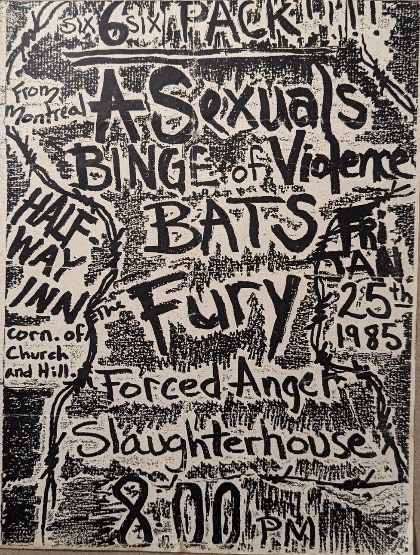 SIX 6 SIX PACK!!!!!
From Montreal
ASexuals
BINGE of Violence
BATS
HALF-
WAY
INN
corn. of
Church
and Hill.
FRI
JAN
25th
1985
The Fury
Forced Anger
Slaughterhouse
8:00 PM